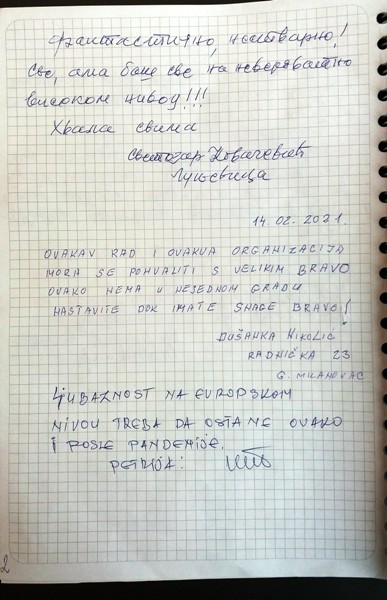 Фантастично, нестварно!
Све, ама баш све на невероватно
високом нивоу!!!
Хвала свима
Светозар Ковачевић
Луњевица
14.02.2021.
OVAKAV RAD I OVAKVA ORGANIZACIJA
MORA SE POHVALITI S VELIKIM BRAVO
OVAKO NEMA U NEJEDNOM GRADU
NASTAVITE DOK IMATE SNAGE BRAVO!
DUŠANKA NIKOLIĆ
RADNIČKA 23
G. MILANOVAC
LJUBAZNOST NA EVROPSKOM
NIVOU TREBA DA OSTANE OVAKO
I POSLE PANDEMIJE.
PETRIJA:
2